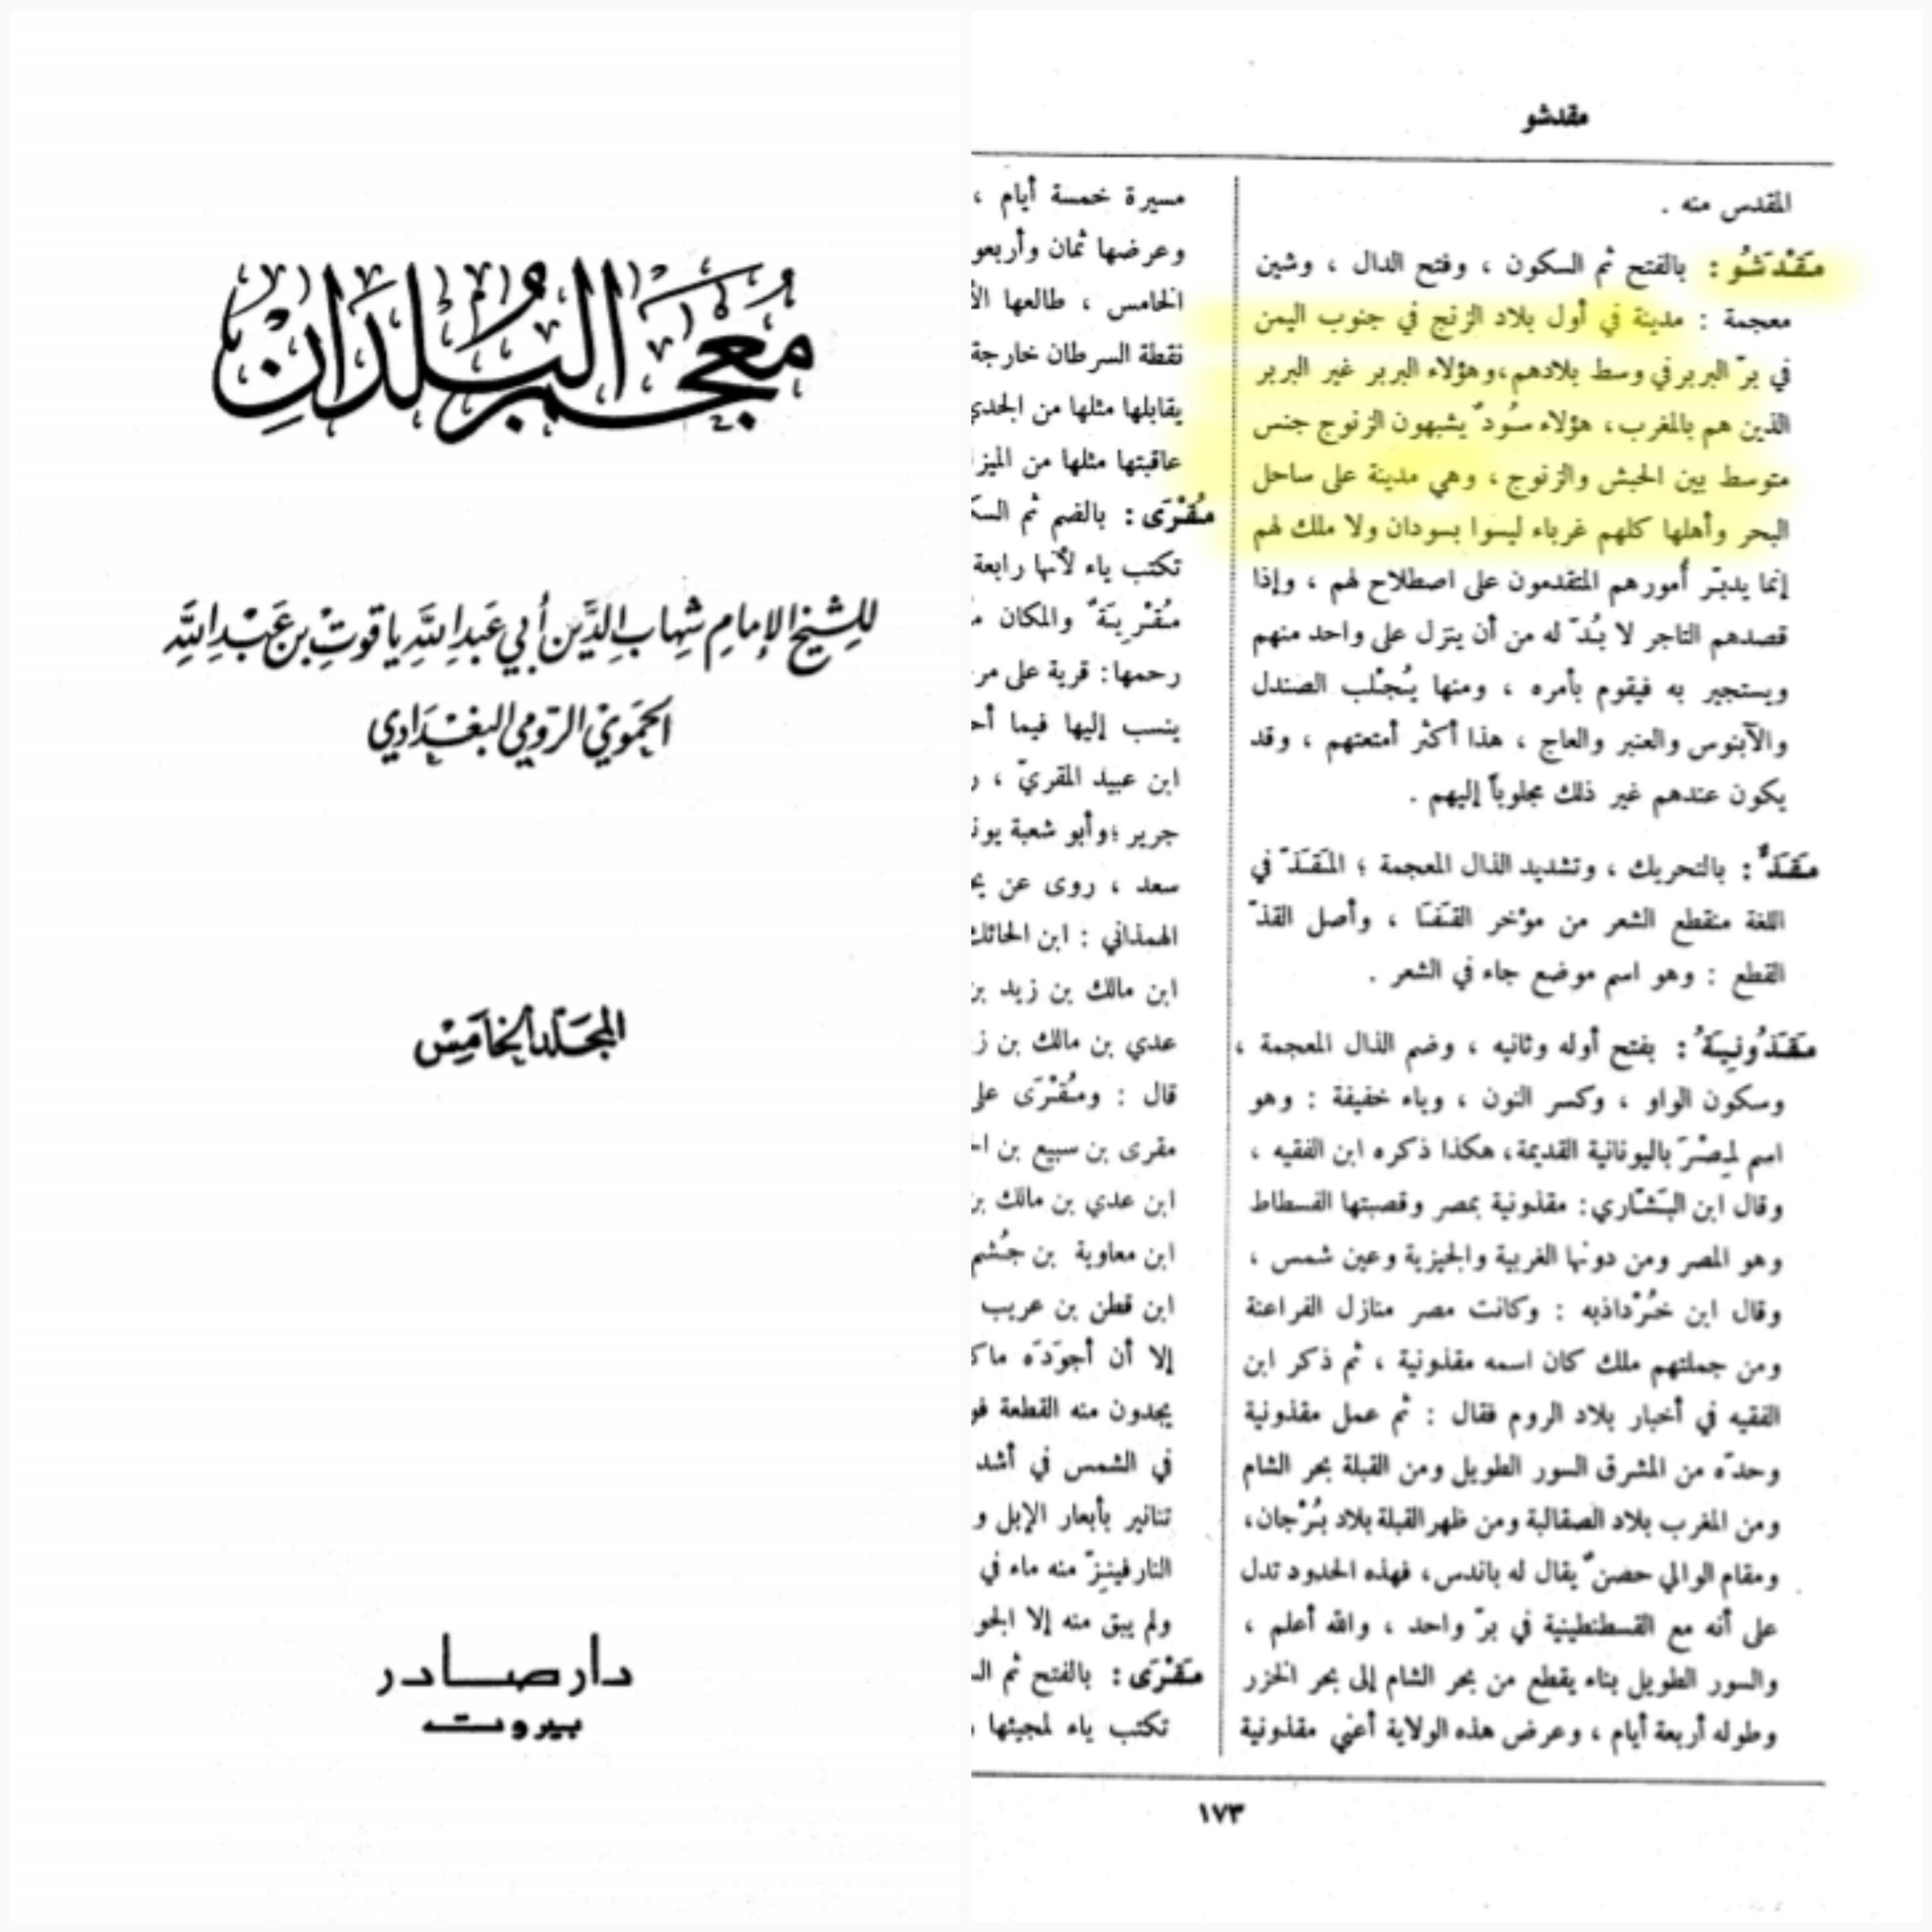 مُعْجَمُ البُلدَانِ
للشيخ الإمام شهاب الدين أبي عبد الله ياقوت بن عبد الله
الحموي الرومي البغدادي
المجلد الخامس
دار صادر
بيروت
مقدشو
المقدس منه .
مَقْدَشُو : بالفتح ثم السكون ، وفتح الدال ، وشين
معجمة : مدينة في أول بلاد الزنج في جنوب اليمن
في برّ البربر في وسط بلادهم، وهؤلاء البربر غير البربر
الذين هم بالمغرب، هؤلاء سُودٌ يشبهون الزنوج جنس
متوسط بين الحبش والزنوج ، وهي مدينة على ساحل
البحر وأهلها كلهم غرباء ليسوا بسودان ولا ملك لهم
إنما يدبّر أمورهم المتقدمون على اصطلاح لهم ، وإذا
قصدهم التاجر لا بُدّ له من أن ينزل على واحد منهم
ويستجير به فيقوم بأمره ، ومنها يُجْلب الصندل
والآبنوس والعنبر والعاج ، هذا أكثر أمتعتهم ، وقد
يكون عندهم غير ذلك مجلوباً إليهم .
مَقَذٌّ : بالتحريك ، وتشديد الذال المعجمة ؛ المَقَذّ في
اللغة منقطع الشعر من مؤخر القَفَا ، وأصل القذّ
القطع : وهو اسم موضع جاء في الشعر .
مَقَذُونِيَةُ : بفتح أوله وثانيه ، وضم الذال المعجمة ،
وسكون الواو ، وكسر النون ، وياء خفيفة : وهو
اسم لمِصْرَ باليونانية القديمة، هكذا ذكره ابن الفقيه ،
وقال ابن البَشّاري : مقذونية بمصر وقصبتها الفسطاط
وهو المصر ومن دونها الغربية والجيزية وعين شمس ،
وقال ابن خُرْداذبه : وكانت مصر منازل الفراعنة
ومن جملتهم ملك كان اسمه مقذونية ، ثم ذكر ابن
الفقيه في أخبار بلاد الروم فقال : ثم عمل مقذونية
وحدّه من المشرق السور الطويل ومن القبلة بحر الشام
ومن المغرب بلاد الصقالبة ومن ظهر القبلة بلاد بُرْجان،
ومقام الوالي حصنٌ يقال له باندس، فهذه الحدود تدل
على أنه مع القسطنطينية في برّ واحد ، والله أعلم ،
والسور الطويل بناء يقطع من بحر الشام إلى بحر الخزر
وطوله أربعة أيام ، وعرض هذه الولاية أعني مقذونية
مسيرة خمسة أيام ،
وعرضها ثمان وأربعو
الخامس ، طالعها
نقطة السرطان خارجة
يقابلها مثلها من الجدي
عاقبتها مثلها من الميز
مُقْرَى : بالضم ثم السك
تكتب ياء لأنها رابعة
مُقْرِيَةٌ والمكان
رحمها : قرية على مر
ينسب إليها فيما أح
ابن عبيد المقريّ ،
جرير ؛ وأبو شعبة يون
سعد ، روى عن يح
الهمذاني : ابن الحائك
ابن مالك بن زيد بن
عدي بن مالك بن ز
قال : ومُقْرَى على
مقرى بن سبيع بن
ابن عدي بن مالك بن
ابن معاوية بن جُشم
ابن قطن بن عريب
إلا أن أجوَدَه ماك
يجدون منه القطعة فو
في الشمس في أشد
تنانير بأبعار الإبل و
النار فينزّ منه ماء في
ولم يبق منه إلا الجو
مَقْرَى : بالفتح ثم
تكتب ياء لمجيئها
١٧٣